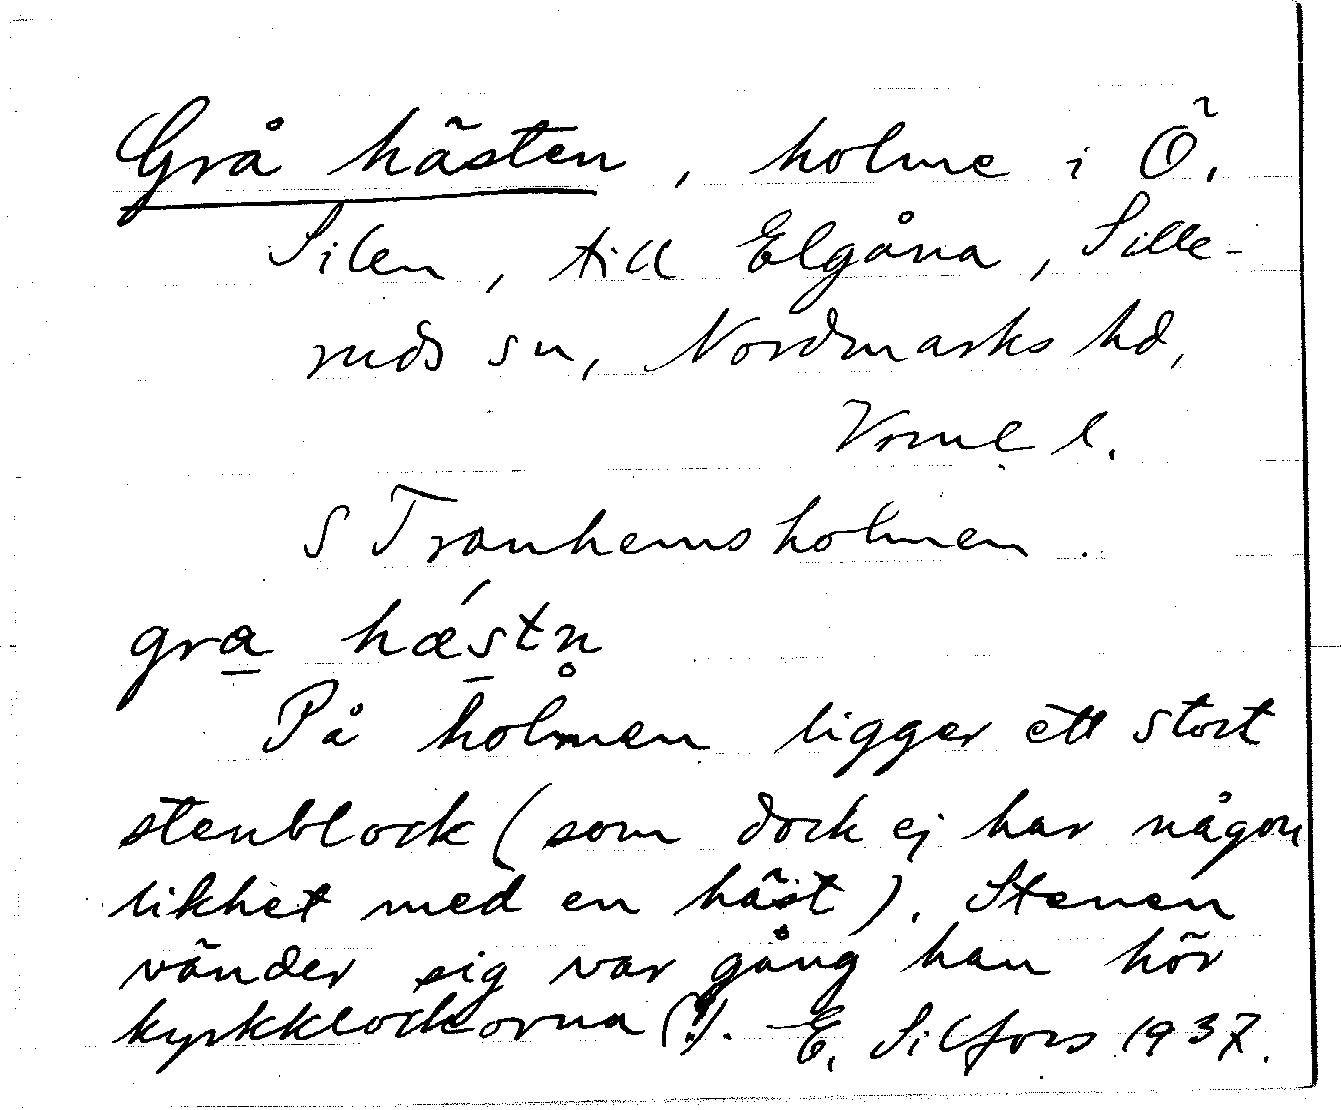 Grå hästen, holme i Ö.
Silen, till Elgåna, Sille-
ruds sn, Nordmarks hd,
Vrml l.
S Tranhemsholmen.
gra̲ hǽs̲tn̥
På holmen ligger ett stort
stenblock (som dock ej har någon
likhet med en häst). Stenen
vänder sig var gång han hör
kyrkklockorna (!). E. Silfors 1937.